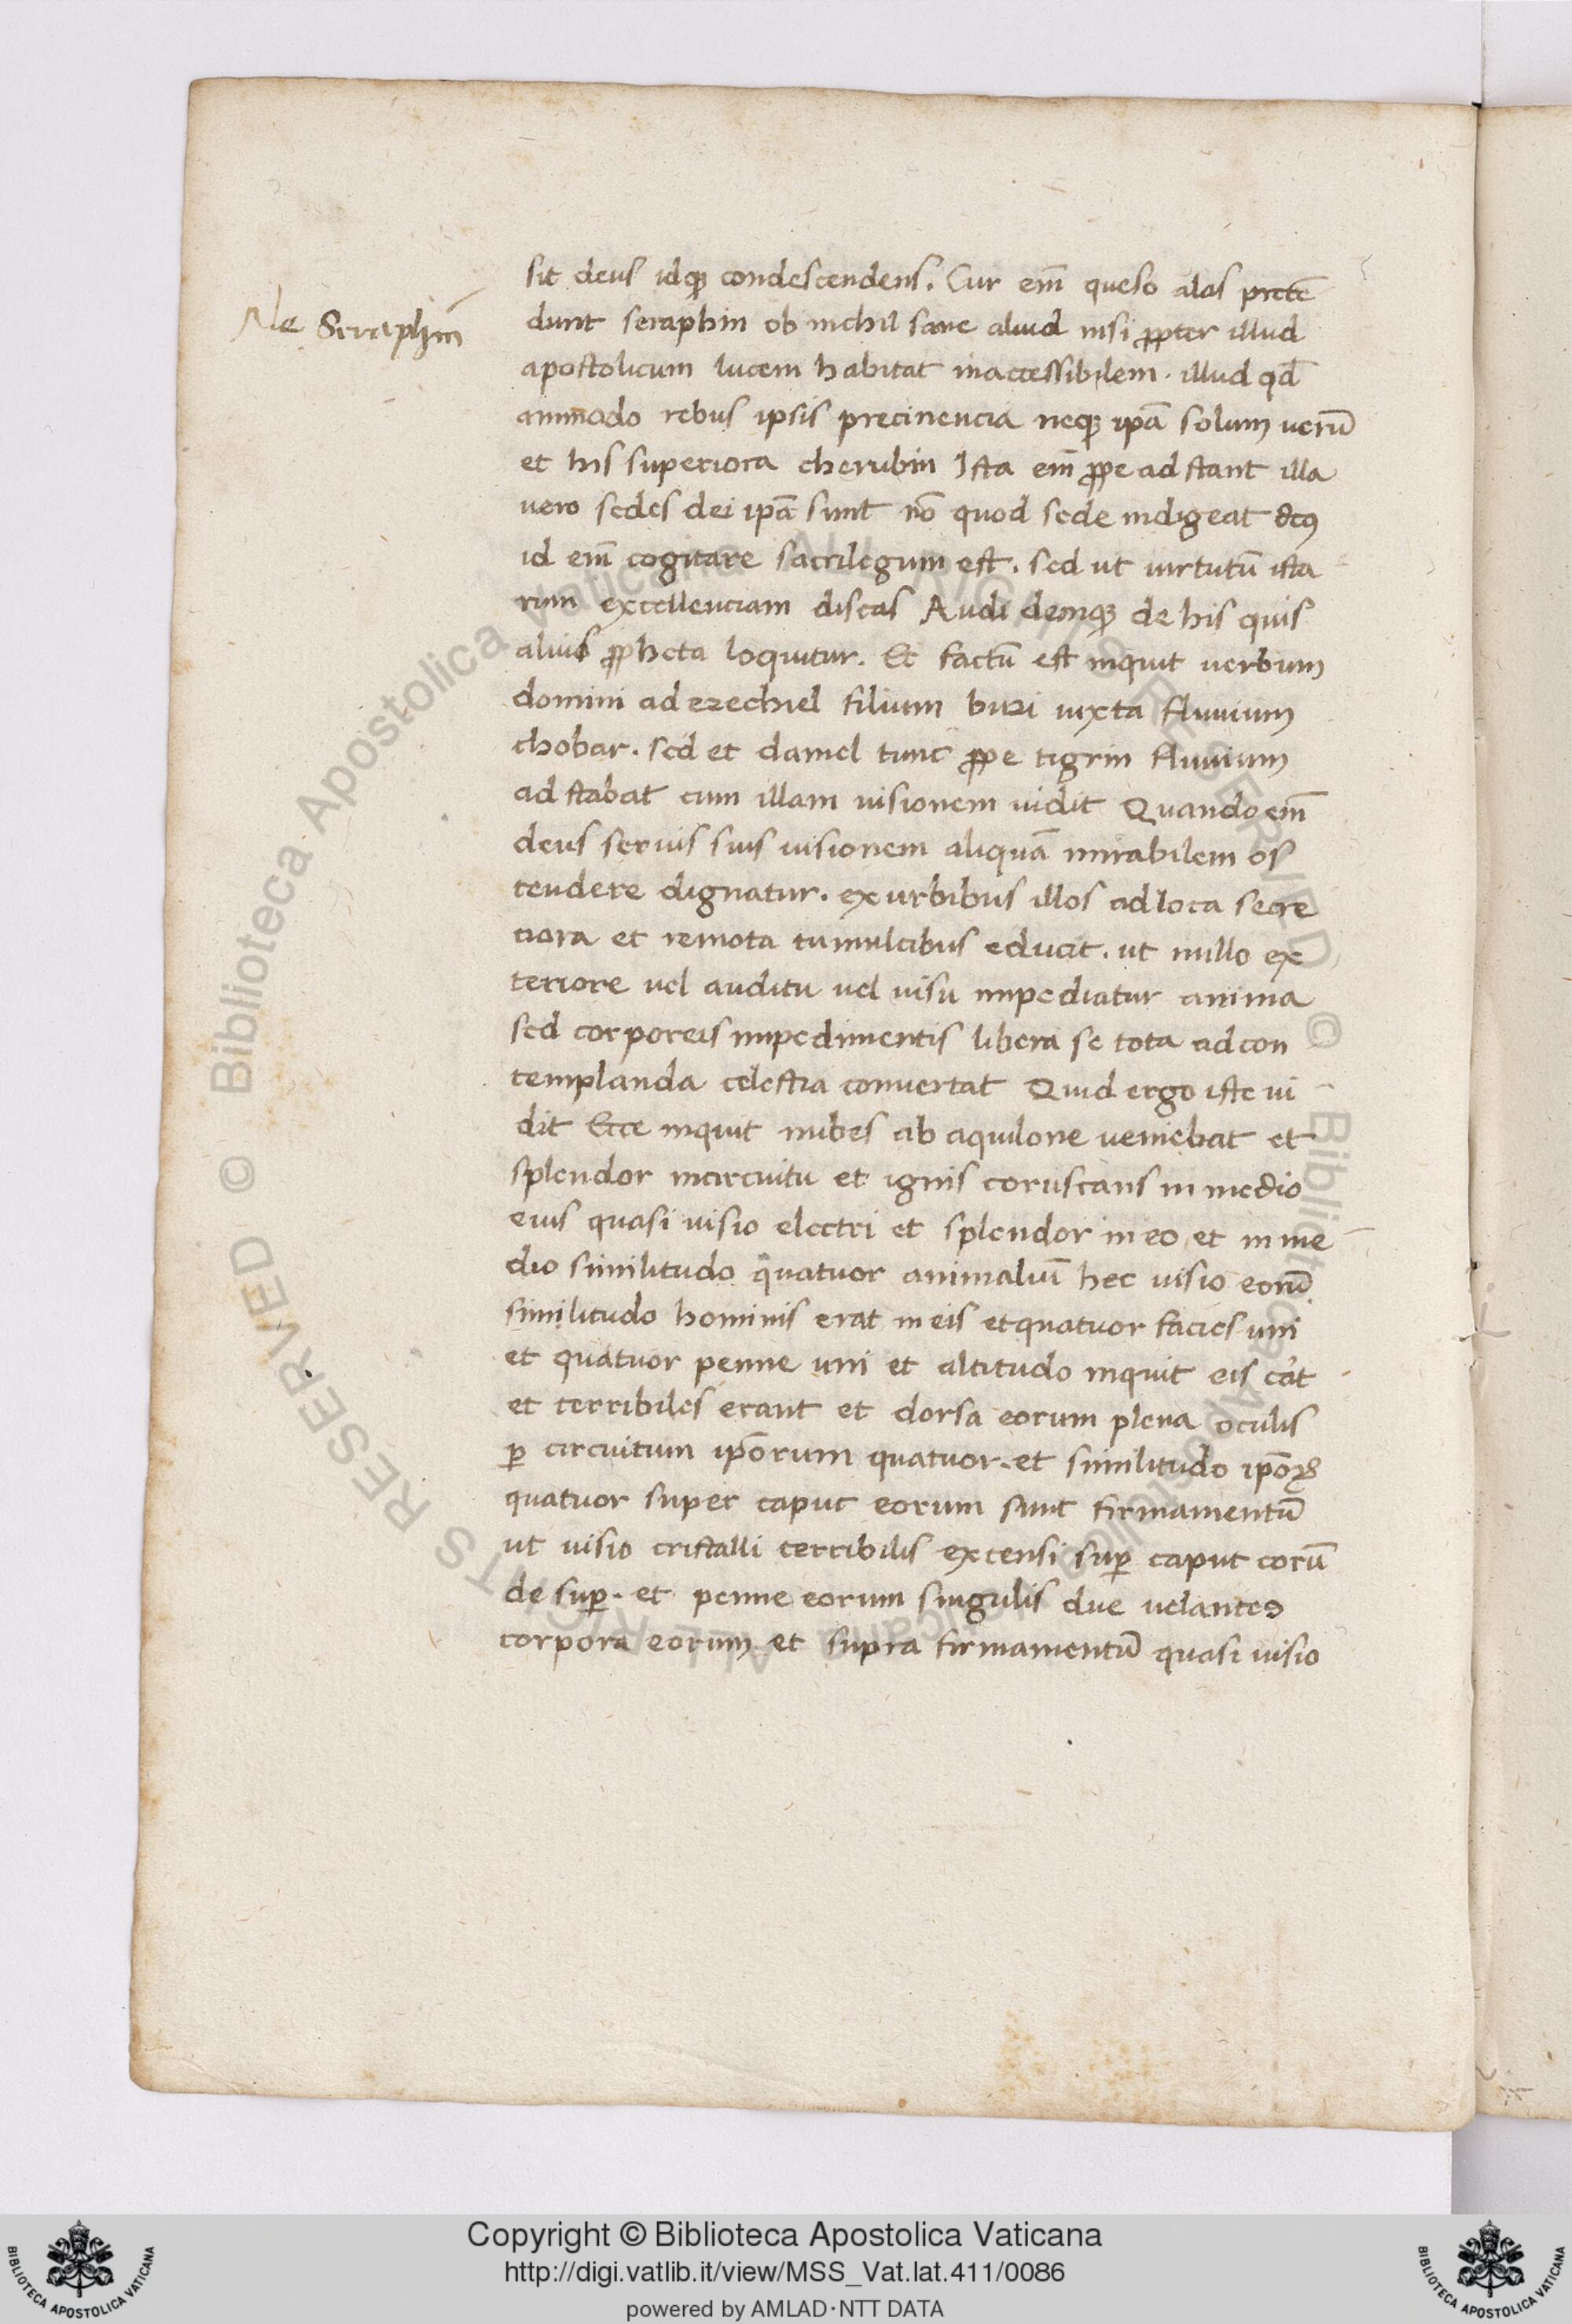 Ale Seraphim
sit deus idqꝫ condescendens. Cur em̅ queso alas p̅tē
dunt seraphin ob nichil sane aliud nisi ꝓpter illud
apostolicum lucem habitat inaccessibilem. illud qd̅
ammodo rebus ipsis precinencia neqꝫ ip̅a solum uerū
et his superiora cherubin Ista em̅ ꝓpe ad stant illa
uero sedes dei ip̅a sunt nō quod sede indigeat deꝰ
id em̅ cogitare sacrilegum est. sed ut uirtutū ista
rum excellenciam discas Audi deniqꝫ de his quis
alius ꝓpheta loquitur. Et factū est inquit uerbum
domini ad ezechiel filium buzi iuxta fluuium
chobar. sed et daniel tunc ꝓpe tigrin fluuium
ad stabat cum illam uisionem uidit Quando em̅
deus seruis suis uisionem aliquā mirabilem os
tendere dignatur. ex urbibus illos ad loca secre
ciora et remota tumultibus educit. ut nullo ex
teriore uel auditu uel uisu impediatur anima
sed corporeis impedimentis libera se tota ad con
templanda celestia conuertat Quid ergo iste ui
dit Ecce inquit nubes ab aquilone ueniebat et
splendor incircuitu et ignis coruscans in medio
eius quasi uisio electri et splendor in eo et in me
dio similitudo quatuor animaliū hec uisio eorū
similitudo hominis erat in eis et quatuor facies uni
et quatuor penne uni et altitudo inquit eis erāt
et terribiles erant et dorsa eorum plena oculis
ꝑ circuitum ip̅orum quatuor. et similitudo ip̅oꝝ
quatuor super caput eorum sunt firmamentū
ut uisio cristalli terribilis extensi suꝑ caput eorū
de suꝑ. et penne eorum singulis due uelantes
corpora eorum. et supra firmamentū quasi uisio
Copyright © Biblioteca Apostolica Vaticana
http://digi.vatlib.it/view/MSS_Vat.lat.411/0086
powered by AMLAD·NTT DATA